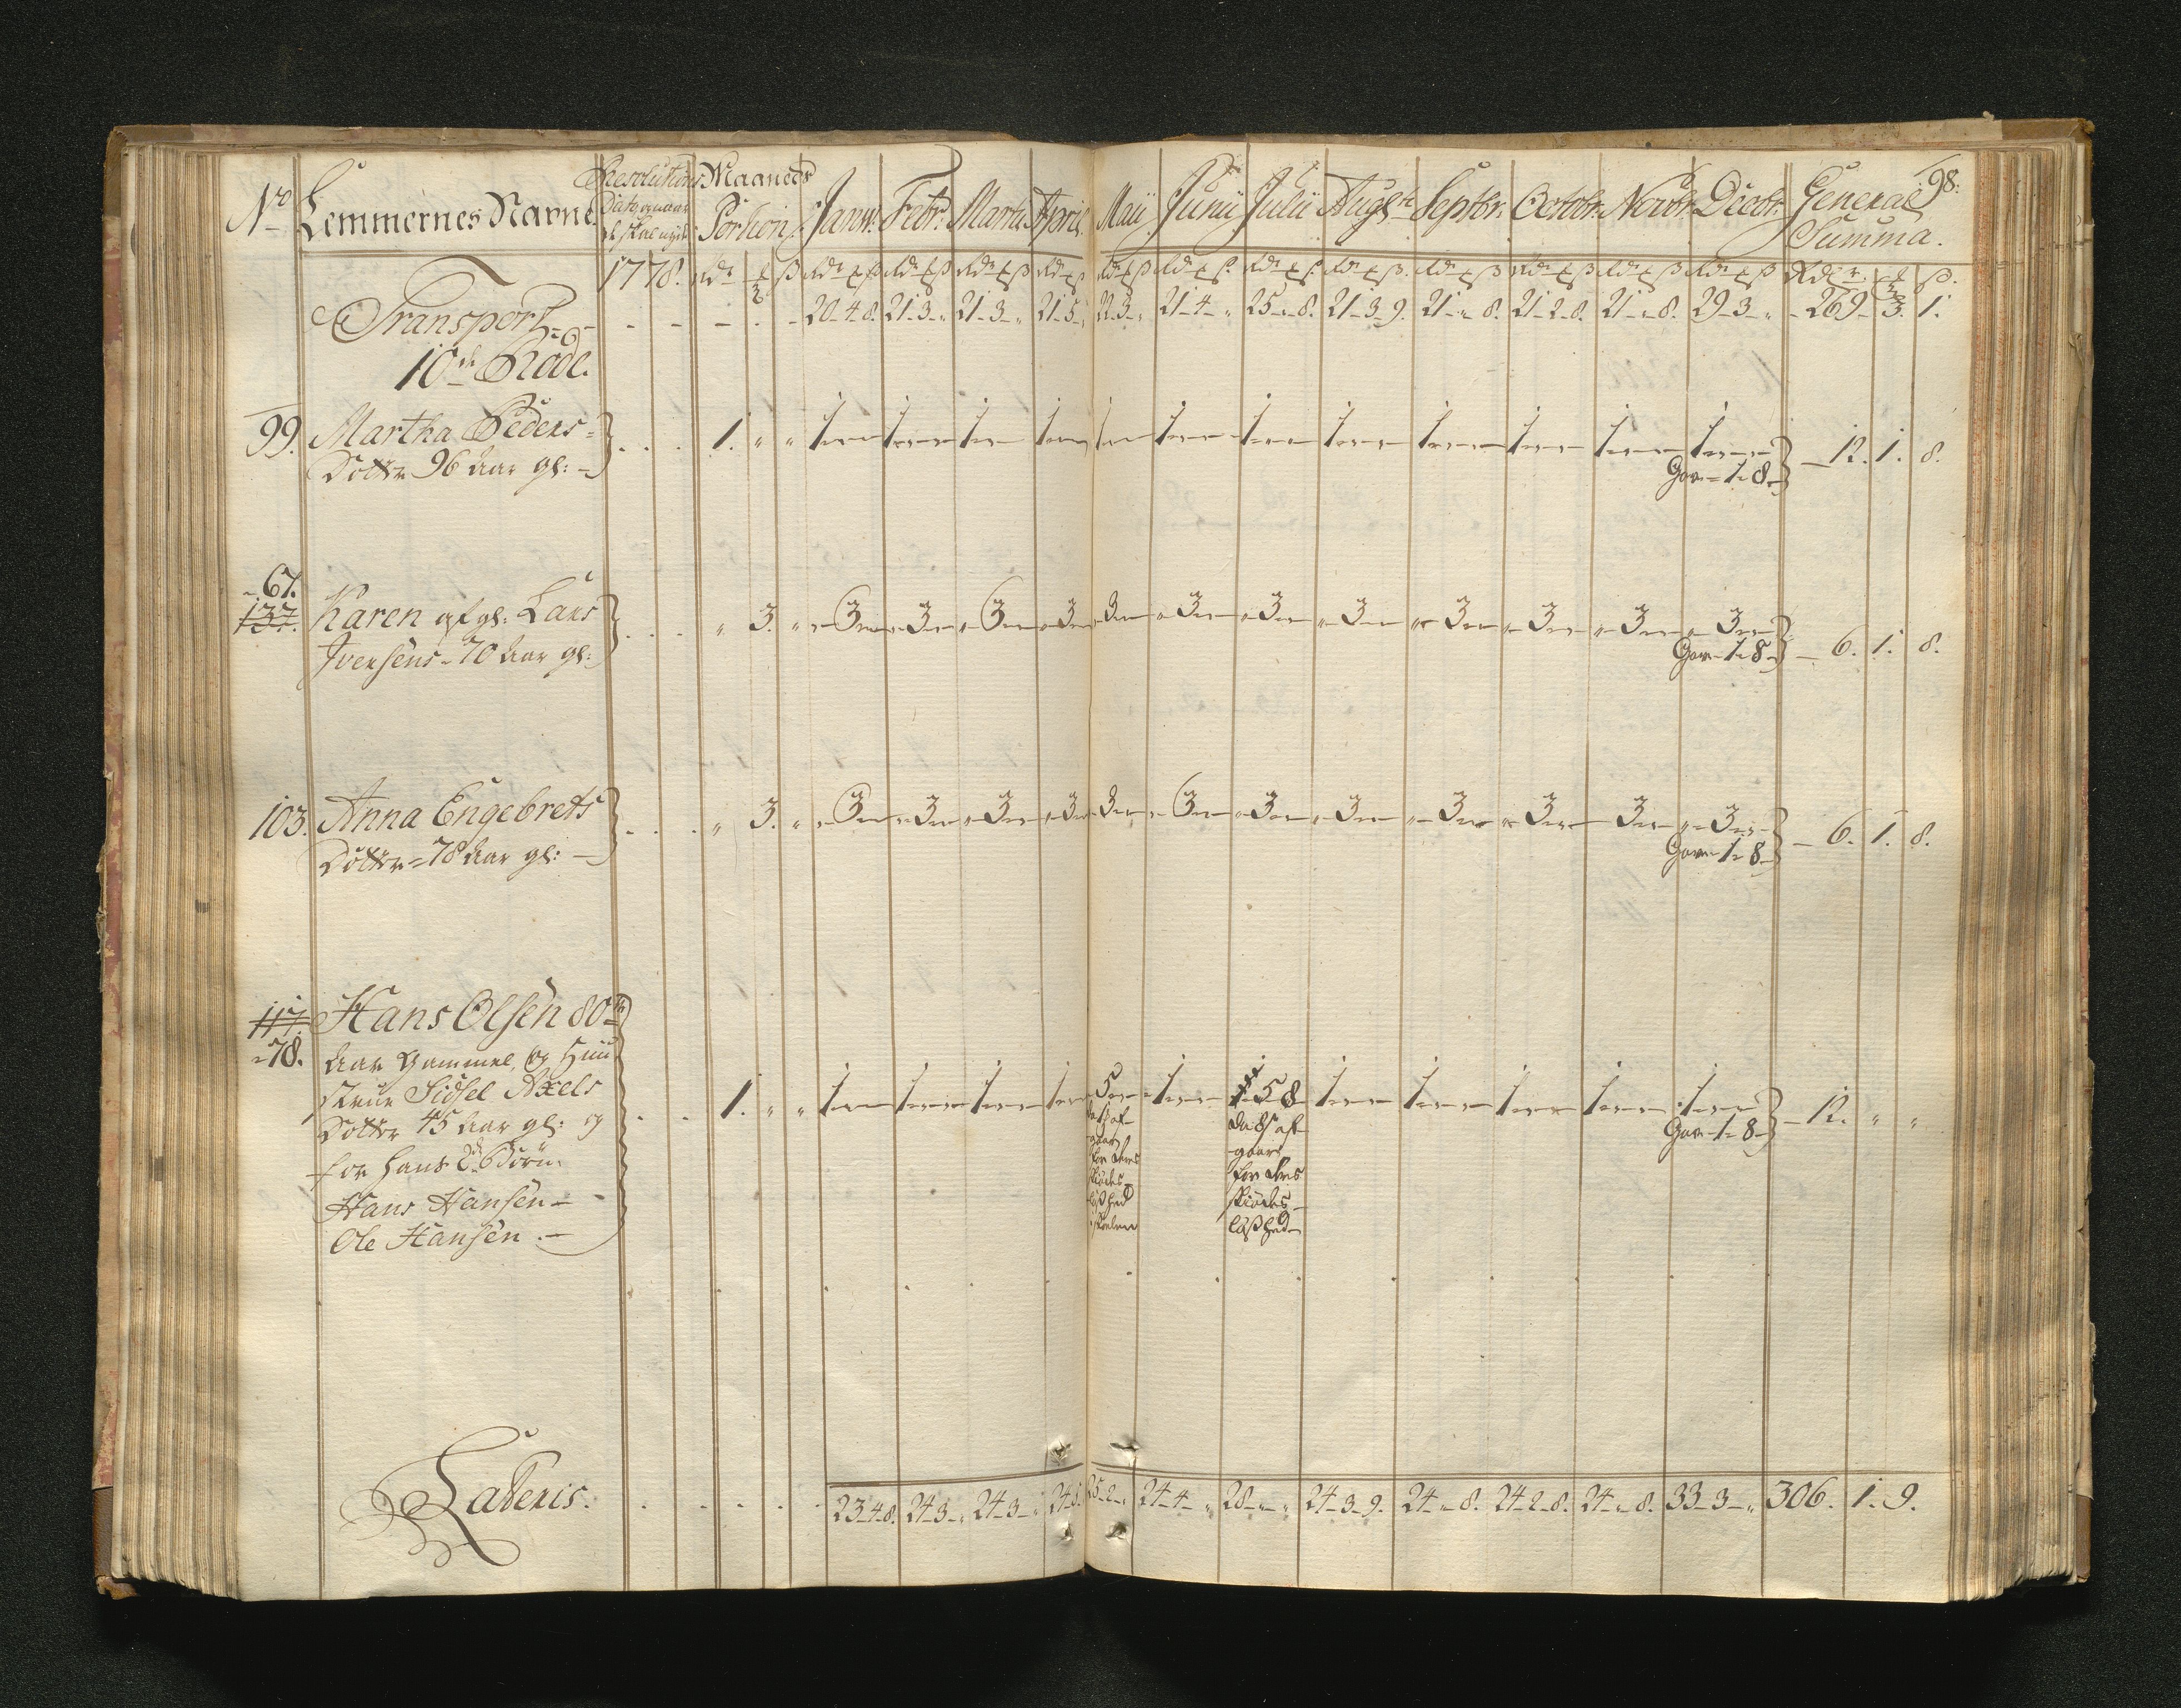 98.
No Lemmernes Navne Resolutions Dato Maaneds Portion Janu: Febr. Marti April. Maii Junii Julii Augst: Septbr: Octobr. Novbr. Decbr. General Summa.
1778. Rdr ß Rdlr ß.
Transport - - - - - 20-4-8. 21-3-„ 21-3-„ 21-5-„ 22-3-„ 21-4-„ 25-„-8. 21-3-9. 21-„-8. 21-2-8. 21-„-8. 29-3-„ - 269- 3. 1.
10de Rode.
99. Martha Peders= . . . 1. „ „ 1-„-„ 1-„-„ 1-„-„ 1-„-„ 1-„-„ 1-„-„ 1-„-„ 1-„-„ 1-„-„ 1-„-„ 1-„-„ 1-„-„ - 12. 1. 8.
Dotter 96 Aar gl: -
Gav-1-8-
-67.
137. Karen afgl: Lars . . . „ 3. „ „-3-„ „-3-„ „-3-„ „-3-„ „-3-„ „-3-„ „-3-„ „-3-„ „-3-„ „-3-„ „-3-„ „-3-„ - 6. 1. 8.
Iversens - 70 Aar gl:
Gav-1-8-
103. Anna Engebrets . . . „ 3. „ „-3-„ „-3-„ „-3-„ „-3-„ „-3-„ „-3-„ „-3-„ „-3-„ „-3-„ „-3-„ „-3-„ „-3-„ - 6. 1. 8.
Dotter - 78 Aar gl: -
Gav-1-8-
117. Hans Olsen 80
-78. Aar Gammel, Og Huu
strue Sidsel Axels . . . 1. „ „ 1-„-„ 1-„-„ 1-„-„ 1-„-„ 5-„ 1-„-„ 1 5 8 1-„-„ 1-„-„ 1-„-„ 1-„-„ 1-„-„ - 12. „ „
Dotter 45 Aar gl: og
Gav-1-8-
for hans 2de Börn
Hans Hansen -
Ole Hansen . -
af-
gaar
for deres
skiödes-
lösshed
afgaar
for deres
skiödes-
lösshed
Lateris. . . . . . 23-4-8. 24-3-„ 24-3-„ 24-5. 25-2-„ 24-4-„ 28-„-„ 24-3-9. 24-„-8. 24-2-8. 24-„-8. 33-3-„ 306. 1. 9.